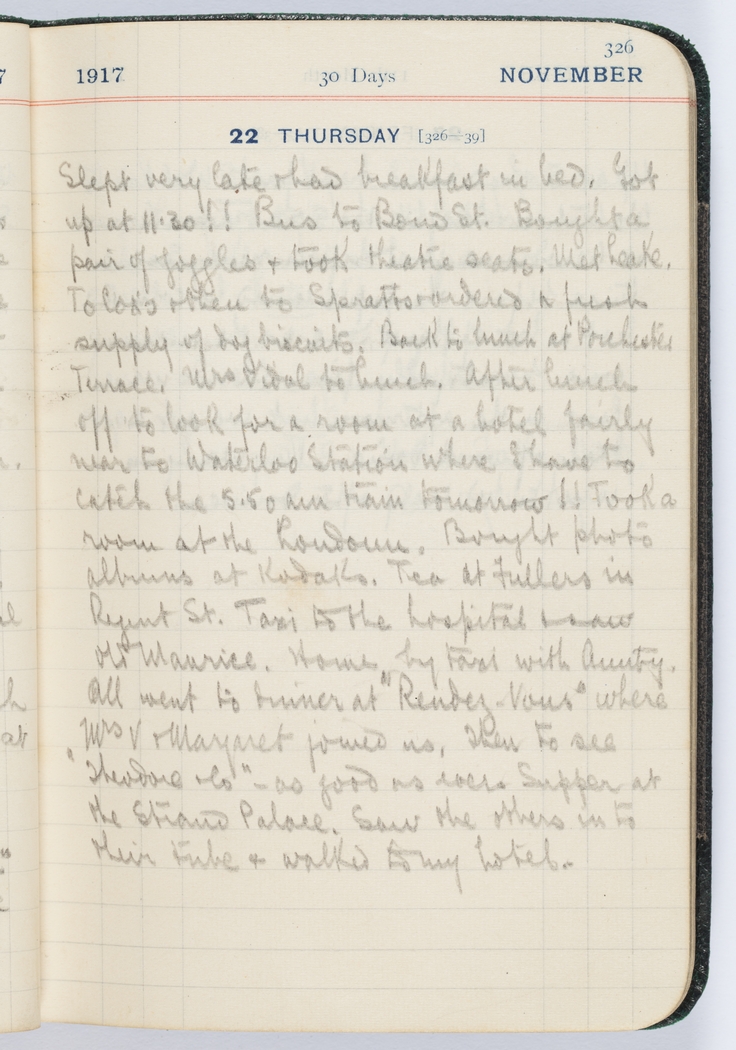 326
1917 30 Days NOVEMBER
22 THURSDAY [326—39]
Slept very late & had breakfast in bed. Got
up at 11.30!! Bus to Bond St. Bought a
pair of goggles & took theatre seats. Met Leake.
To Cox's & then to Spratts & ordered a fresh
supply of dog biscuits. Back to lunch at Porchester
Terrace. Mrs Vidal to lunch. After lunch
off to look for a room at a hotel fairly
near to Waterloo Station where I have to
catch the 5.50 am train tomorrow!! Took a
room at the . Bought photo
albums at Kodaks. Tea at Fullers in
Regent St. Taxi to the hospital & saw
old Maurice. Home by taxi with Aunty.
All went to dinner at "Rendez-Vous" where
Mrs V & Margaret joined us, then to see
"Theodore & Co" – as good as ever. Supper at
the Strand Palace. Saw the others in to
their tube & walked to my hotel.